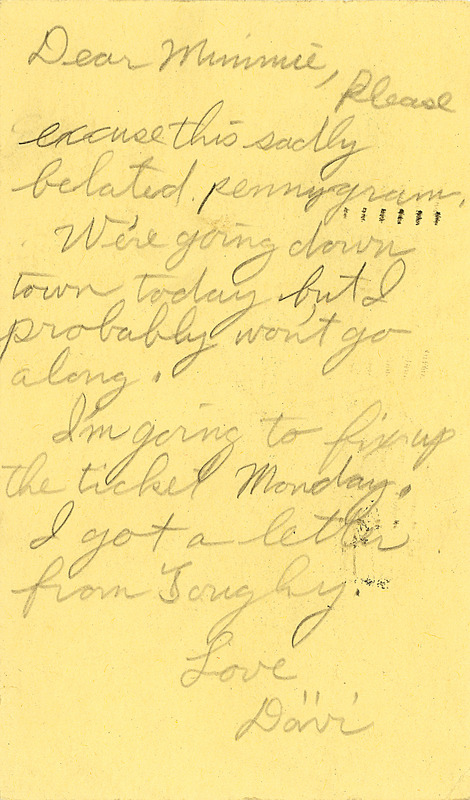 Dear Mimmie,
Please
excuse this sadly
belated pennygram.
We're going down
town today but I
probably won't go
along.
I'm going to fix up
the ticket Monday.
I got a letter
from Toughy.
Love
Dävi